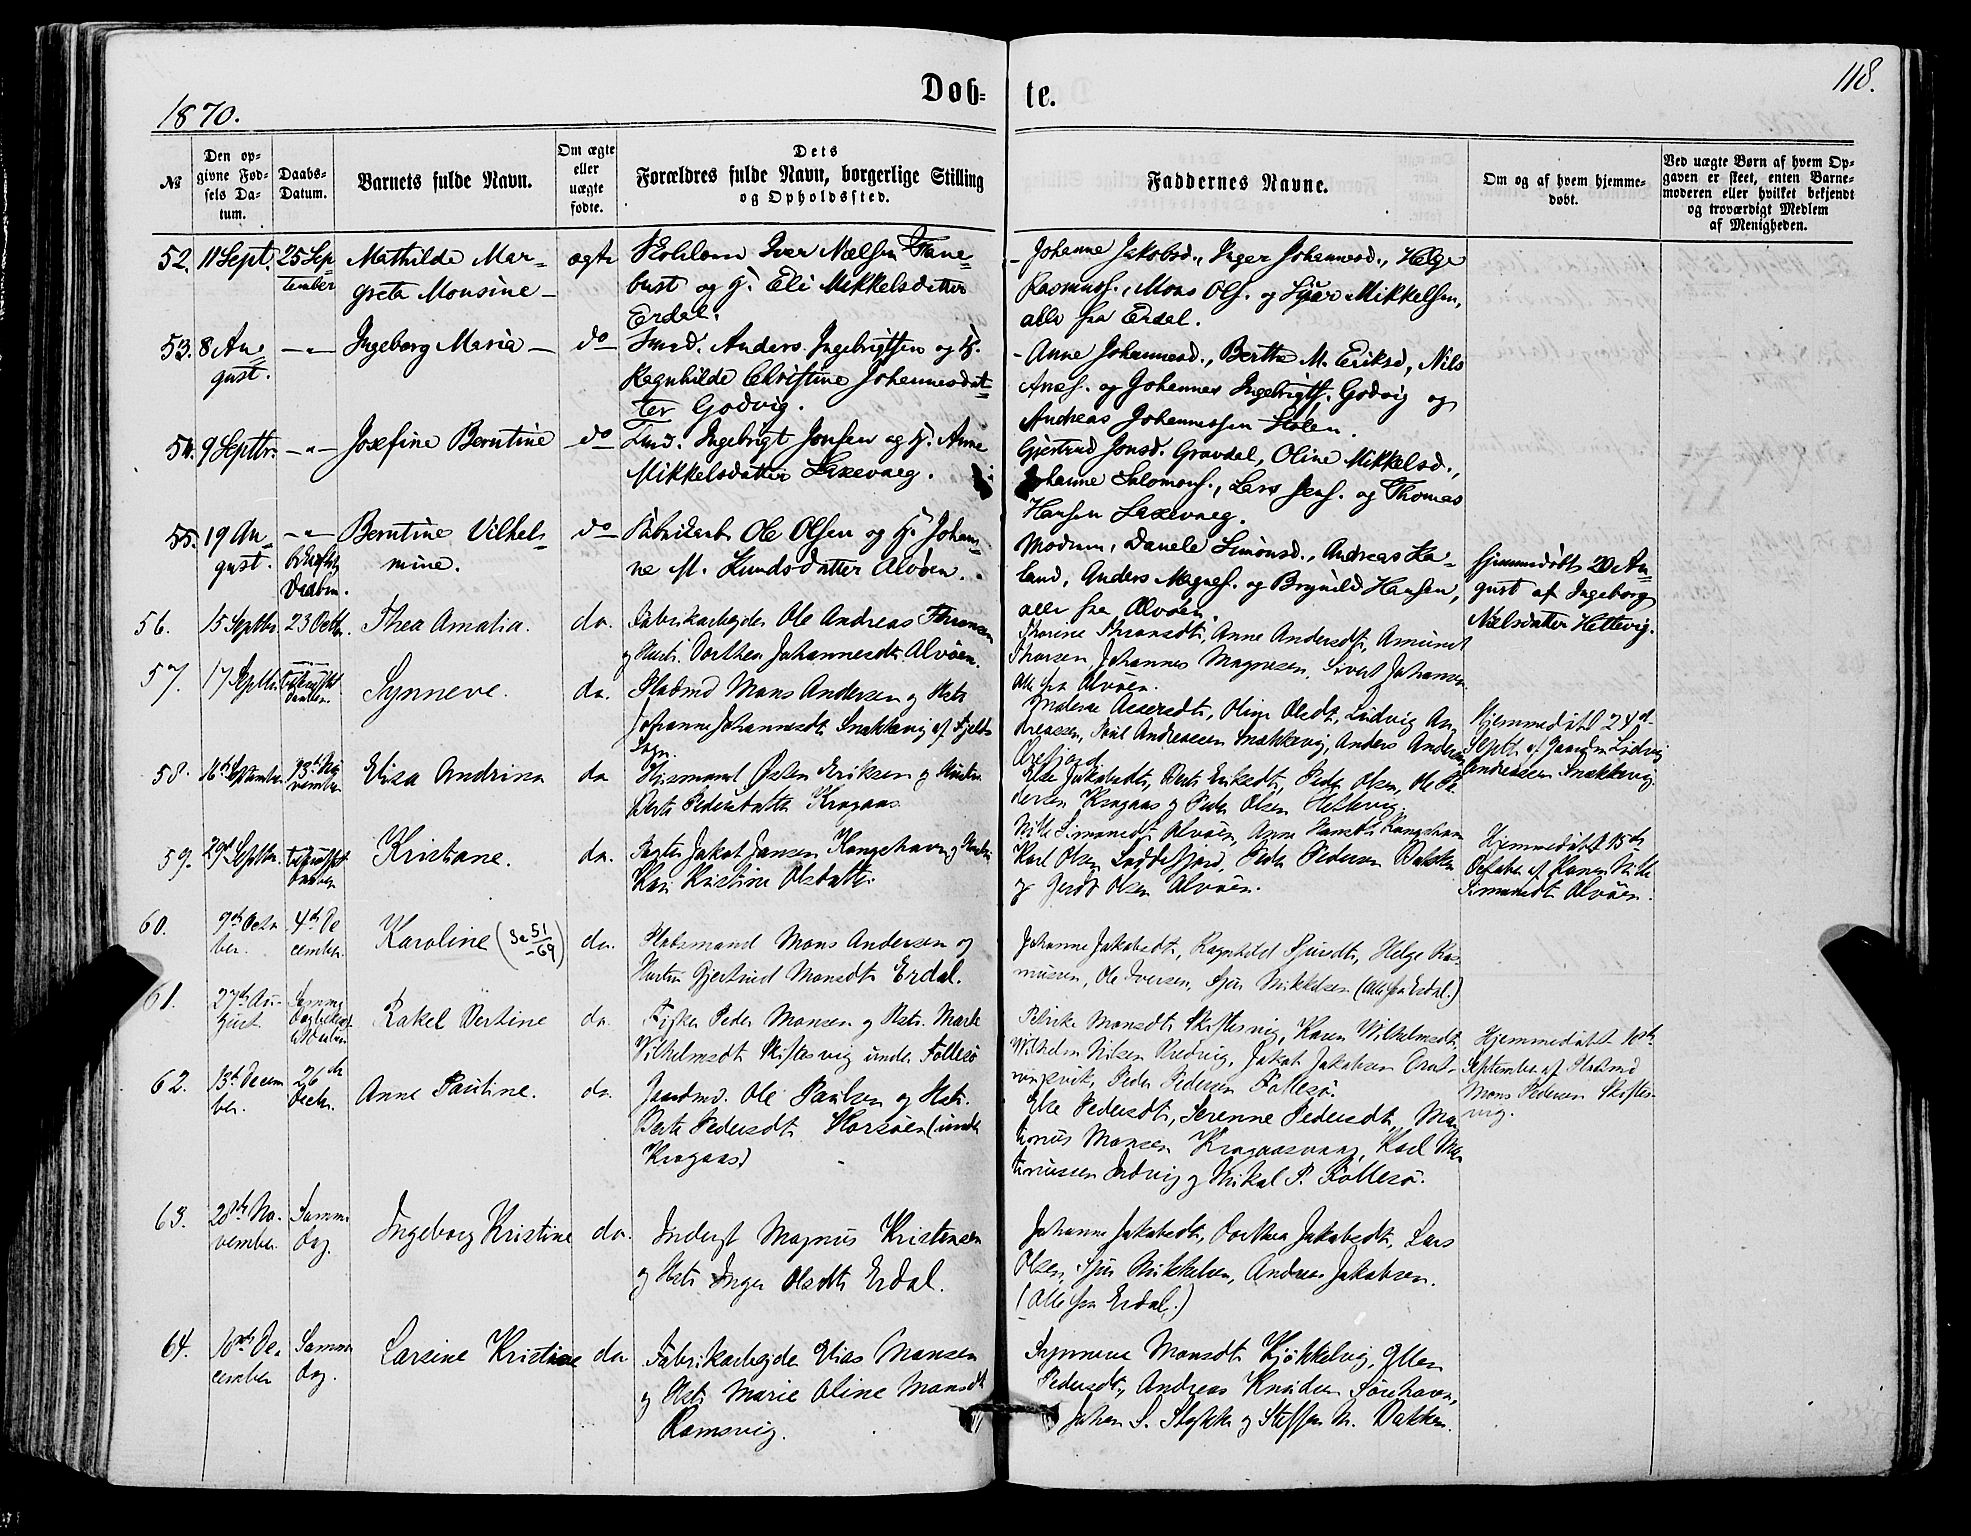 1870.
Døb-
te.
118.
№
Den op-
givne Fød-
sels Da-
tum.
Daabs-
Datum.
Barnets fulde Navn.
Om ægte
eller
uægte
fødte.
Dets
Forældres fulde Navn, borgerlige Stilling
og Opholdssted.
Faddernes Navne.
Om og af hvem hjemme-
døbt.
Ved uægte Børn af hvem Op-
gaven er skeet, enten Barne-
moderen eller hvilket bekjendt
og troværdigt Medlem
af Menigheden.
52. 11 Sept. 25 Sep-
tember
Mathilde Mar-
greta Monsine
ægte
Iver Nielsen Tane-
bust og H. Eli Mikkelsdatter
Erdal.
Johanne Jakobsd., Inger Johannesd., Helge
Rasmuss., Mons Ols. og Sjur Mikkelsen,
alle fra Erdal.
53. 8 Au-
gust.
-"-
Ingeborg Maria
do
Anders Ingebrigtsen og H.
Ragnhilde Christine Johannesdat-
ter Godvig.
Anne Johannesd., Berthe M. Eriksd, Nils
og Johannes Ingebrigts. Godvig og
Andreas Johannessen
54. 9 Septbr.
-"-
Josefine Berntine
do
Ingebrigt Jonsen og H. Anne
Mikkelsdatter Laxevaag.
Gjertrud Jonsd. Gravdal, Oline Mikkelsd.,
Johanne Salomons., Lars Jens. og Thomas
Hansen Laxevaag.
55. 19 Au-
gust.
-"-
Daaben.
Berntine Vilhel-
mine.
do
Fabrikarb. Ole Olsen og H. Johan-
ne M. Knudsdatter Alvøen.
Modren, Danele Simonsd., Andreas Ka-
land, Anders Magnes. og Brynild Hansen,
alle fra Alvøen.
Hjemmedøbt 20 Au-
gust af Ingeborg
Nielsdatter Hettevig.
56. 15 Septbr. 23 Octb.
Thea Amalia.
do.
Fabrikarbeider Ole Andreas Thronsen
og Hustr. Dorthea Johannesdt. Alvøen.
Thorine Thronsdt., Anne Andersdt., Amund
Thorsen, Johannes Magnesen, Sivert Johansen
Alle fra Alvøen.
57. 17 Septbr.
Synneve.
do.
Pladsmd Mons Andersen og Hstr.
Johanne Johannesdt. Snekkevig af Fjeld
Sogn.
Olsdt., Ludvig An-
dreasen, Poul Andreasen Snekkevig, Anders Andersen
Hjemmedøbt 24de
Septb. af Ludvig
Andreasen Snekkevig.
58. 16de September 13de No-
vember
Elisa Andrina
do
Husmand Østen Eriksen og Hustru
Berte Pedersdatter Kragaas.
Else Jakobsdt., Berte Eriksdt., Peder Olsen, Ole Pe-
dersen Kragaas og Peder Olsen Hettevig.
59. 29de Septbr.
Kristiane.
do.
Jakob Jansen Kongshavn og Hustru
Kari Kristine Olsdatter
Simonsdt. Alvøen, Anne Hansdt. Kongshavn
Karl Olsen Loddefjord, Peder Pedersen Bakken
og Olsen Alvøen.
Hjemmedøbt 15de
October af
Simonsdt. Alvøen.
60. 9de Octo-
ber.
4de De-
cember.
Karoline (Se 51/69)
do.
Pladsmand Mons Andersen og
Hustru Gjertrud Monsdt. Erdal.
Johanne Jakobsdt., Ragnhild Sjursdt., Helge Ras-
mussen, Ole Iversen, Sjur Mikkelsen (Alle fra Erdal.)
61. 27de Au-
gust
Samme
Dag
Rakel Bertine
do.
Fisker Peder Monsen og Hstr. Marte
Vilhelmsdt. Skiftesvig under Follesø
Petrike Monsdt. Skiftesvig, Karen Vilhelmsdt.
Vilhelm Nilsen Bredvig, Jakob Jakobsen
Peder Pedersen Follesø.
Hjemmedøbt 10de
September af Pladsmd
Mons Pedersen Skiftes-
vig.
62. 13de Decem-
ber.
26de
Decbr.
Anne Pauline.
do.
Ole Paulsen og Hstr.
Berte Pedersdt. Horsøen (under
Kragaas)
Else Pedersdt., Serenne Pedersdt., Mar-
Monsen Kragaasvaag, Karl Ma-
og Mikal P. Follesø.
63. 28de No-
vember
Samme
Dag.
Ingeborg Kristine
do.
Inderst Magnus Kristensen
og Hstr. Inger Olsdt. Erdal.
Johanne Jakobsdt., Dorthea Jakobsdt., Lars
Olsen, Sjur Mikkelsen, Andreas Jakobsen.
(Alle fra Erdal.)
64. 10de De-
cember
Samme
Dag.
Larsine Kristine
do
Fabrikarbejder Elias Monsen
og Hstr. Marie Oline Monsdt.
Ramsvig.
Synneve Monsdt. Kjøkkelvig, Ellen
Pedersdt., Andreas Knudsen Sørehavn,
Johan S. Stykke og Steffen N. Bakken.